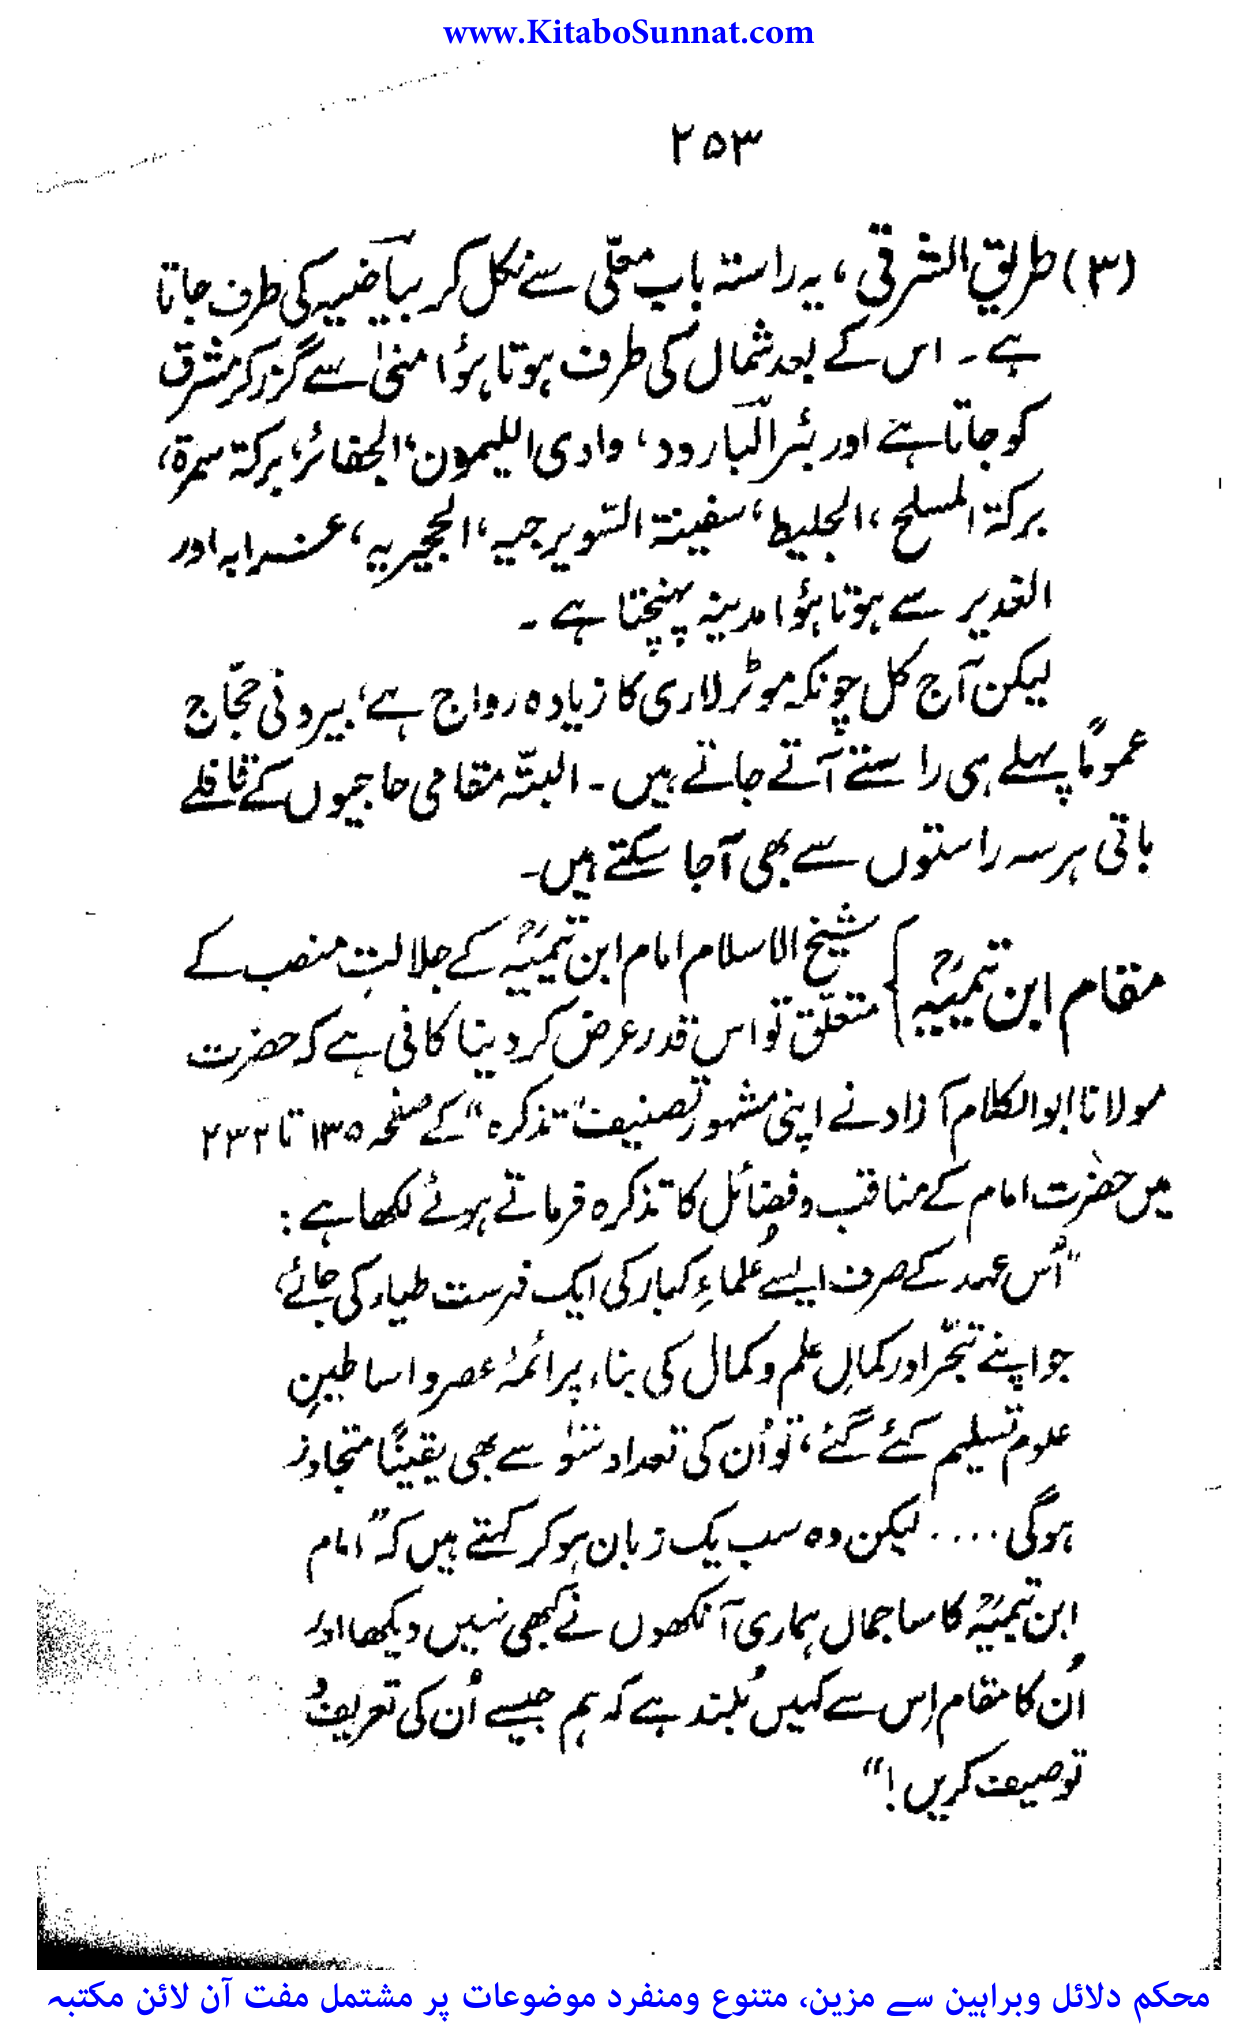 www.KitaboSunnat.com
۲۵۳
(۳) طریق الشرقی، یہ راستہ باب معلّٰی سے نکل کر بیاضیہ کی طرف جاتا
ہے۔ اس کے بعد شمال کی طرف ہوتا ہؤا منیٰ سے گزر کر مشرق
کو جاتا ہے اور بئر البارود، وادی اللیمون، الحفائر، برکۃ سمرۃ،
برکۃ المسلح، الجلیط، سفینۃ السویرجیہ، الحجیریہ، غرابہ اور
الغدیر سے ہوتا ہؤا مدینہ پہنچتا ہے۔
لیکن آج کل چونکہ موٹر لاری کا زیادہ رواج ہے، بیرونی حجّاج
عموماً پہلے ہی راستے آتے جاتے ہیں۔ البتّہ مقامی حاجیوں کے قافلے
باقی ہر سہ راستوں سے بھی آ جا سکتے ہیں۔
مقام ابن تیمیہؒ } شیخ الاسلام امام ابن تیمیہؒ کے جلالتِ منصب کے
متعلّق تو اس قدر عرض کر دینا کافی ہے کہ حضرت
مولانا ابوالکلام آزاد نے اپنی مشہور تصنیف "تذکرہ" کے صفحہ ۱۳۵ تا ۲۳۲
میں حضرت امام کے مناقب و فضائل کا تذکرہ فرماتے ہوئے لکھا ہے:
"اُس عہد کے صرف ایسے عُلماءِ کبار کی ایک فہرست طیار کی جائے،
جو اپنے تبحّر اور کمالِ علم و کمال کی بناء پر ائمۂ عصر و اساطینِ
علوم تسلیم کئے گئے، تو اُن کی تعداد سَو سے بھی یقیناً متجاوز
ہوگی .... لیکن وہ سب یک زبان ہو کر کہتے ہیں کہ "امام
ابن تیمیہؒ کا سا جمال ہماری آنکھوں نے کبھی نہیں دیکھا اور
اُن کا مقام اِس سے کہیں بُلند ہے کہ ہم جیسے اُن کی تعریف و
توصیف کریں!"
محکم دلائل وبراہین سے مزین، متنوع ومنفرد موضوعات پر مشتمل مفت آن لائن مکتبہ